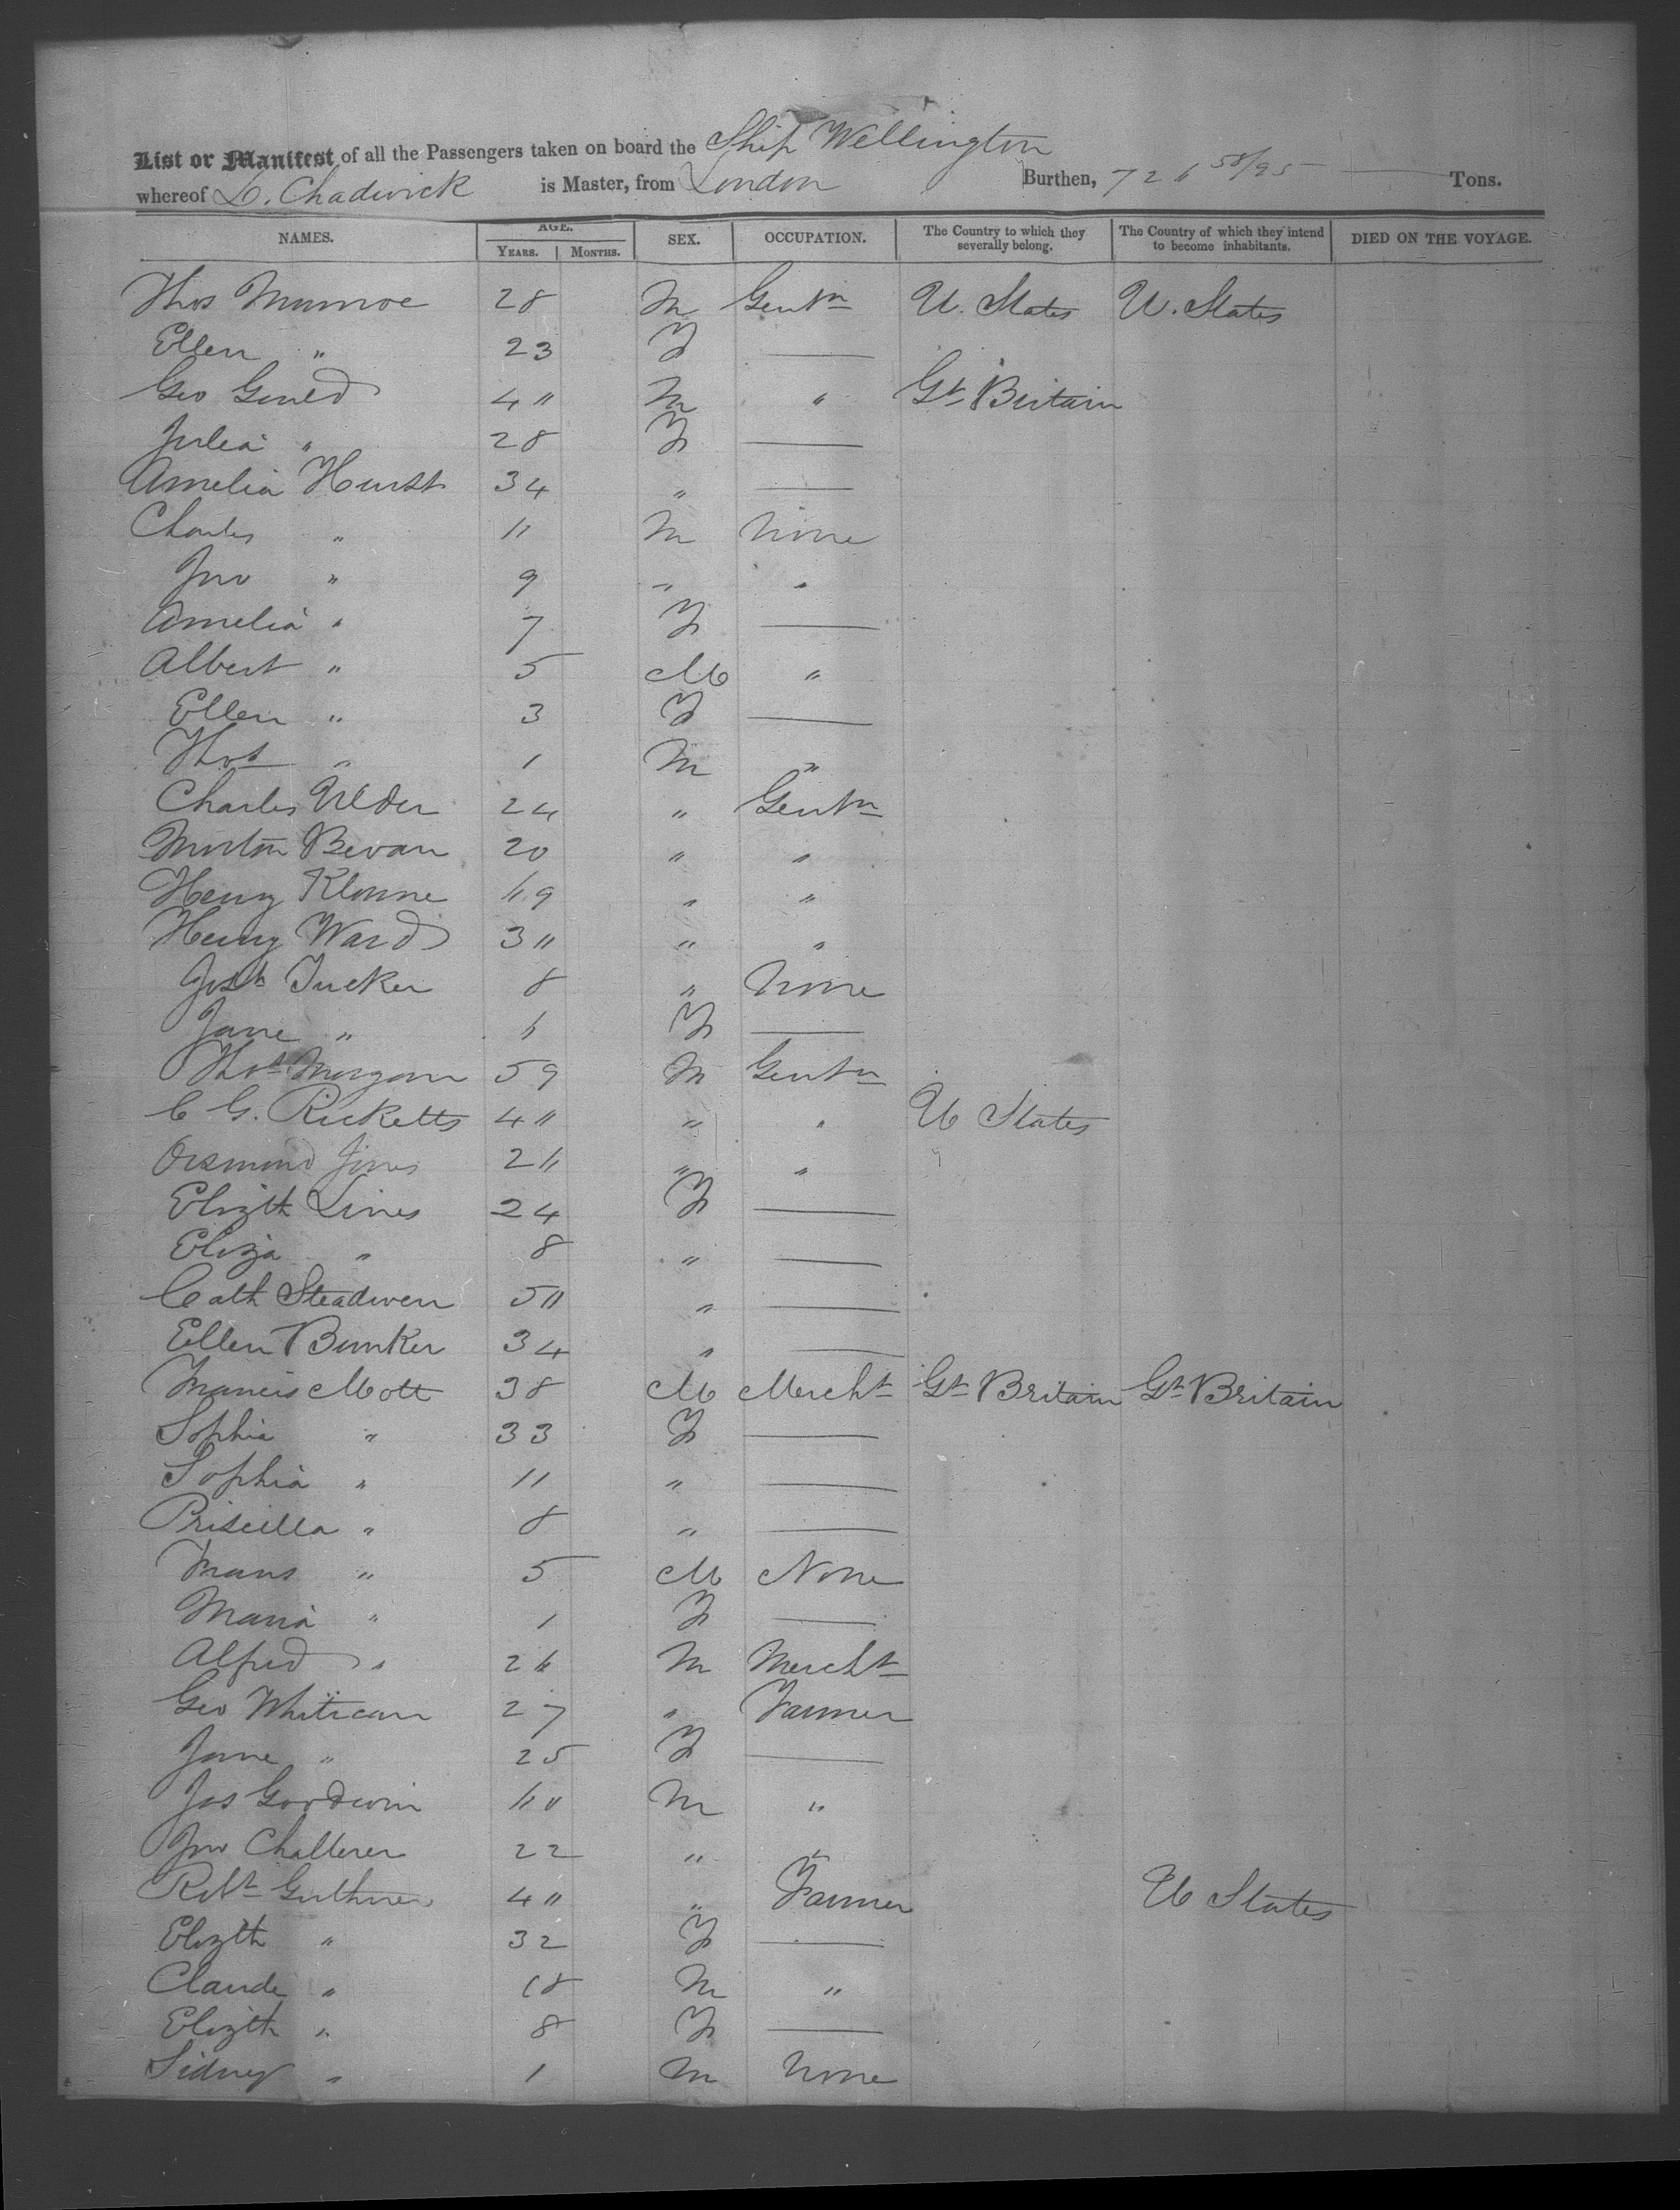 List or Manifest of all the Passengers taken on board the Ship Wellington
whereof D. Chadwick is Master, from London Burthen, 726 58/95 Tons.
NAMES. AGE. SEX. OCCUPATION. The Country to which they severally belong. The Country of which they intend to become inhabitants. DIED ON THE VOYAGE.
YEARS. MONTHS.
Thos Munroe 28 M Gentn U. States U. States
Ellen " 23 F —
Geo Gould 40 M " Gt Britain
Julia " 28 F —
Amelia Hurst 34 " —
Charles " 11 M None
Jno " 9 " "
Amelia " 7 F —
Albert " 5 M "
Ellen " 3 F —
Thos " 1 M "
Charles Elder 24 " Gentn
Morton Bevan 20 " "
Henry Klonne 69 " "
Henry Ward 30 " "
Josh Tucker 8 " None
Jane " 6 F —
Thos Morgan 59 M Gentn
C G. Ricketts 40 " " U States
Orsmond Jones 26 " "
Elizth Lines 24 F —
Eliza " 8 " —
Cath Steadwen 50 " —
Ellen Bunker 34 " —
Francis Mott 38 M Mercht Gt Britain Gt Britain
Sophia " 33 F —
Sophia " 11 " —
Priscilla " 8 " —
Frans " 5 M None
Maria " 1 F —
Alfred " 26 M Mercht
Geo Whitican 27 " Farmer
Jane " 25 F —
Jas Goodwin 60 M "
Jno Challener 22 " "
Robt Guthrie 40 " Farmer U States
Elizth " 32 F —
Claude " 18 M "
Elizth " 8 F —
Sidney " 1 M None